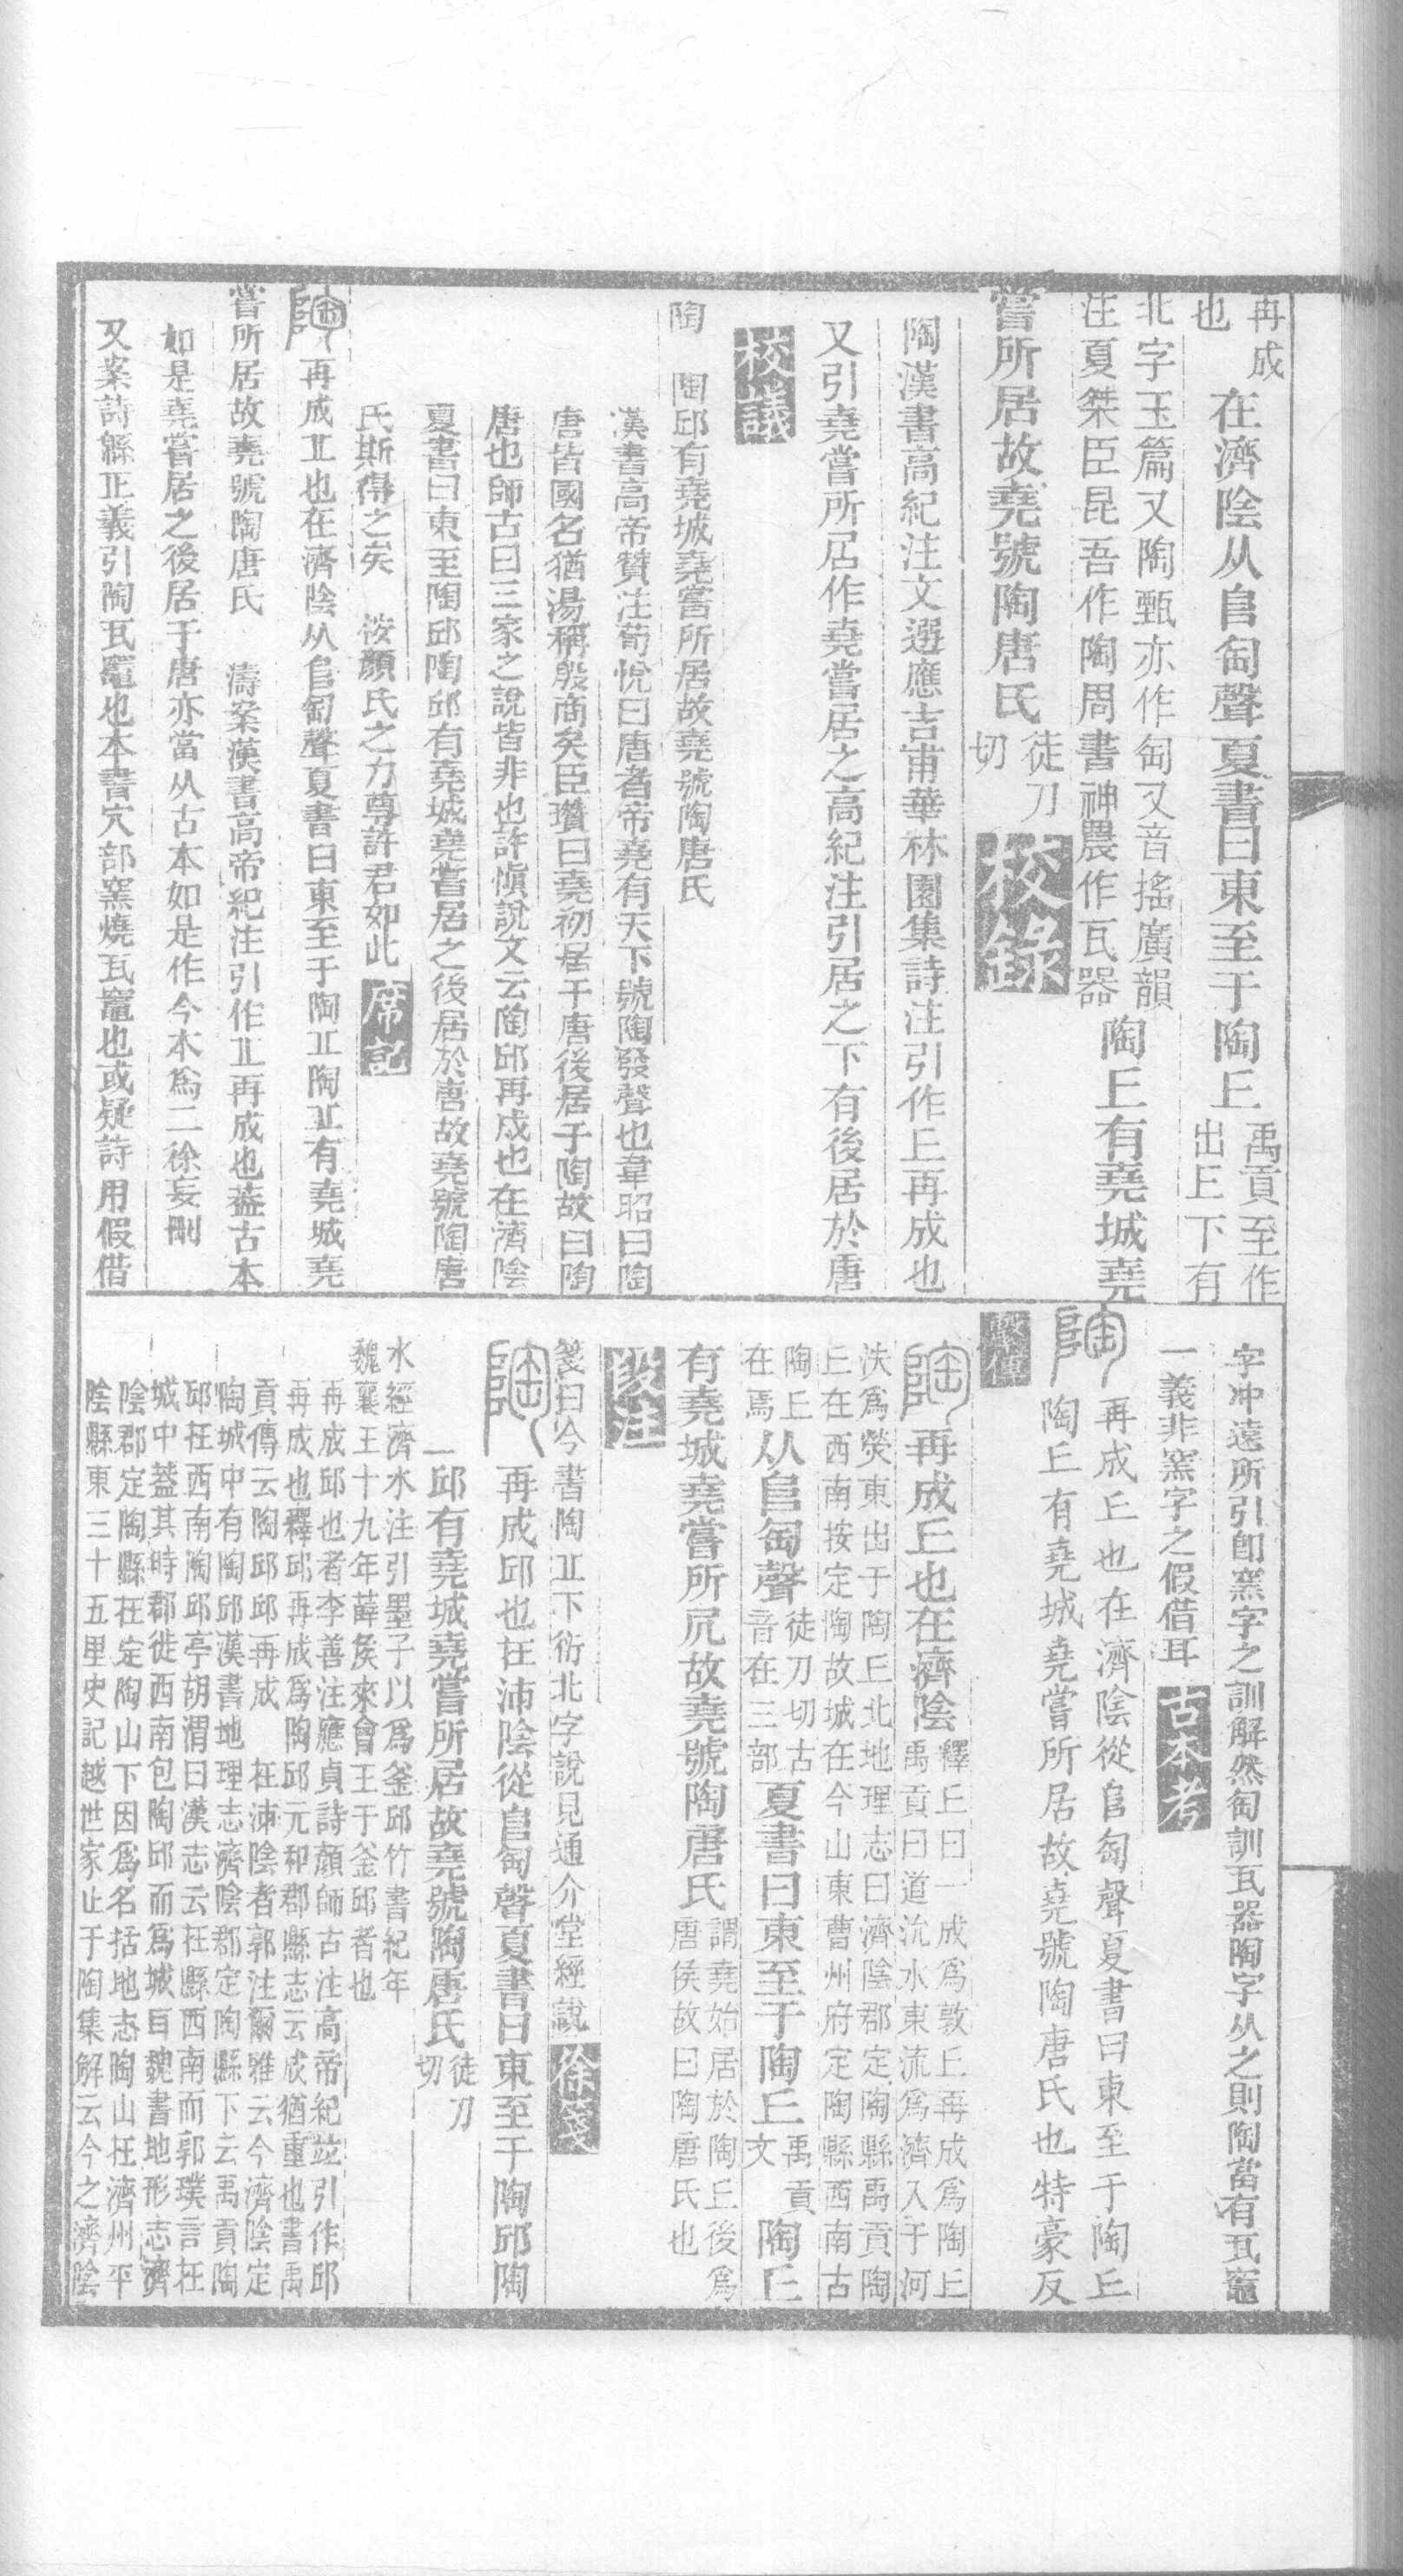 再成
也
在濟陰从𨸏匋聲夏書曰東至于陶丘
禹貢至作
出丘下有
北字玉篇又陶甄亦作匋又音搖廣韻
注夏桀臣昆吾作陶周書神農作瓦器
陶丘有堯城堯
嘗所居故堯號陶唐氏
徒刀
切
校錄
陶漢書高紀注文選應吉甫華林園集詩注引作丘再成也
又引堯嘗所凥作堯嘗居之高紀注引居之下有後居於唐
校議
陶 陶邱有堯城堯嘗所居故堯號陶唐氏
漢書高帝贊注荀悅曰唐者帝堯有天下號陶發聲也韋昭曰陶
唐皆國名猶湯稱殷商矣臣瓚曰堯初居于唐後居于陶故曰陶
唐也師古曰三家之說皆非也許慎說文云陶邱再成也在濟陰
夏書曰東至陶邱陶邱有堯城堯嘗居之後居於唐故堯號陶唐
氏斯得之矣 按顏氏之力尊許君如此
席記
陶
再成丠也在濟陰从𨸏匋聲夏書曰東至于陶丠陶丠有堯城堯
嘗所居故堯號陶唐氏 濤案漢書高帝紀注引作丠再成也葢古本
如是堯嘗居之後居于唐亦當从古本如是作今本爲二徐妄刪
又案詩緜正義引陶瓦竈也本書穴部窯燒瓦竈也或疑詩用假借
字冲遠所引卽窯字之訓解然匋訓瓦器陶字从之則陶當有瓦竈
一義非窯字之假借耳
古本考
陶
再成丘也在濟陰從𨸏匋聲夏書曰東至于陶丘
陶丘有堯城堯嘗所居故堯號陶唐氏也特豪反
繫傳
陶
再成丘也在濟陰
釋丘曰一成爲敦丘再成爲陶丘
禹貢曰道沇水東流爲濟入于河
泆爲熒東出于陶丘北地理志曰濟陰郡定陶縣禹貢陶
丘在西南按定陶故城在今山東曹州府定陶縣西南古
陶丘
在焉
从𨸏匋聲
徒刀切古
音在三部
夏書曰東至于陶丘
禹貢
文
陶丘
有堯城堯嘗所凥故堯號陶唐氏
謂堯始居於陶丘後爲
唐侯故曰陶唐氏也
段注
箋曰今書陶丠下衍北字說見通介堂經說
徐箋
陶
再成邱也在泲陰從𨸏匋聲夏書曰東至于陶邱陶
邱有堯城堯嘗所居故堯號陶唐氏
徒刀
切
水經濟水注引墨子以爲釜邱竹書紀年
魏襄王十九年薛侯來會王于釜邱者也
再成邱也者李善注應貞詩顏師古注高帝紀竝引作邱
再成也釋邱再成爲陶邱元和郡縣志云成猶重也書禹
貢傳云陶邱邱再成 在泲陰者郭注爾雅云今濟陰定
陶城中有陶邱漢書地理志濟陰郡定陶縣下云禹貢陶
邱在西南陶邱亭胡渭曰漢志云在縣西南而郭璞言在
城中葢其時郡徙西南包陶邱而爲城𦣹魏書地形志濟
陰郡定陶縣在定陶山下因爲名括地志陶山在濟州平
陰縣東三十五里史記越世家止于陶集解云今之濟陰